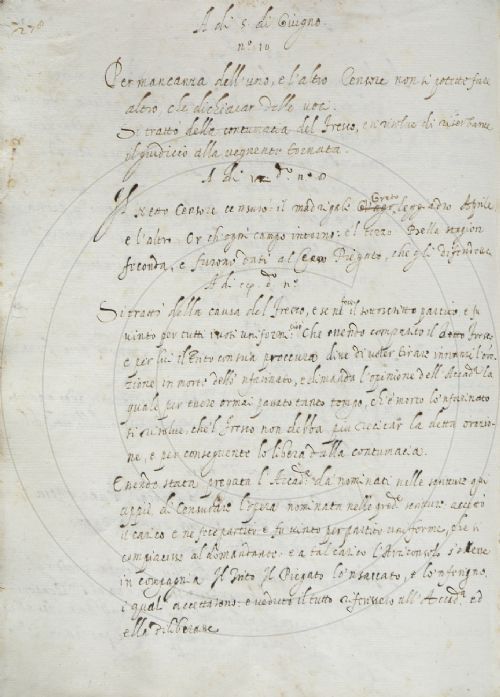 A di 5. di Giugno.
n.º 10
Per mancanza dell'uno, e l'altro Censore non si potette fare
altro, che dichiarar delle voci.
Si trattò della contumacia del Fresco, e si risolve di
il giudicio alla vegnente tornata.
A di d.º n.º
Il Netto Censore censurò il madrigale Greto leggiadro Aprile
e l'altro. Or ch'ogni campo intorno: e'l terzo Bella stagion
feconda, e furono dati al Piegato, che gli difendesse
A di d.º n.º
Si trattò della causa del Fresco, e se ne fece il sottoscritto partito e fu
vinto per tutti i voti uniformi Che avendo comparito il detto Fresco
e per lui il con sua procura dire di voler trar innanzi l'ora-
zione in morte dello 'nfarinato, e dimanda l'opinione dell'Accad.ª la
quale per avere ormai passato tanto tempo, ch'è morto lo 'nfarinato
si risolve, che'l Fresco non debba più recitar la detta orazio-
ne, e per conseguente lo libera dalla contumacia.
Essendo stata pregata l'Accad.ª da nominati nelle scritture qui
appiè di Censurare l'opera nominata nelle scritture accettò
il carico e ne fece partito e fu vinto per partito uniforme, che si
compiacesse al domandante. e a tal carico l'Arciconsolo s'elesse
in compagnia Il Il Piegato lo 'nsaccato, e lo
i quali accettarono: e veduto il tutto all'Accad.ª ed
ella diliberare